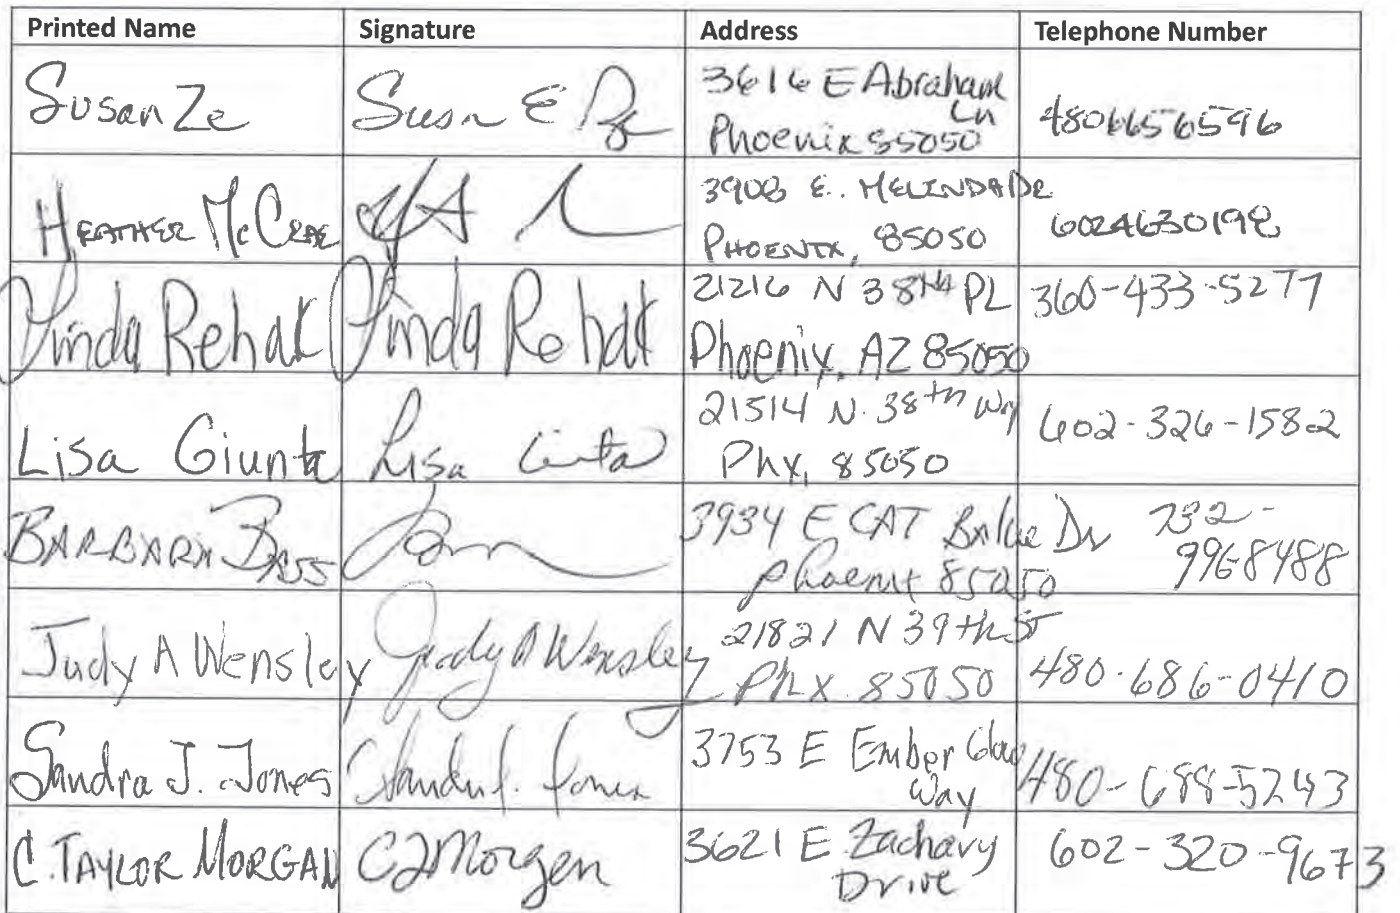 Printed Name Signature Address Telephone Number
Susan Ze Susan E 3616 E Abraham
Ln
Phoenix 85050 4806656596
Heather McCrae 3908 E. Melinda Dr
Phoenix, 85050 6024630198
Linda Rehak Linda Rehak 21216 N 38th PL 360-433-5277
Phoenix, AZ 85050
Lisa Giunta Lisa Giunta 21514 N. 38th Way 602-326-1582
Phx, 85050
Barbara Bass 3934 E CAT Balue Dr 732-
Phoenix 85050 9968488
Judy A Wensley Judy A Wensley 21821 N 39th ST
Phx 85050 480-686-0410
Sandra J. Jones Sandra J. Jones 3753 E Ember Glow
Way 480-688-5243
C. Taylor Morgan CTMorgan 3621 E Zachary
Drive 602-320-9673